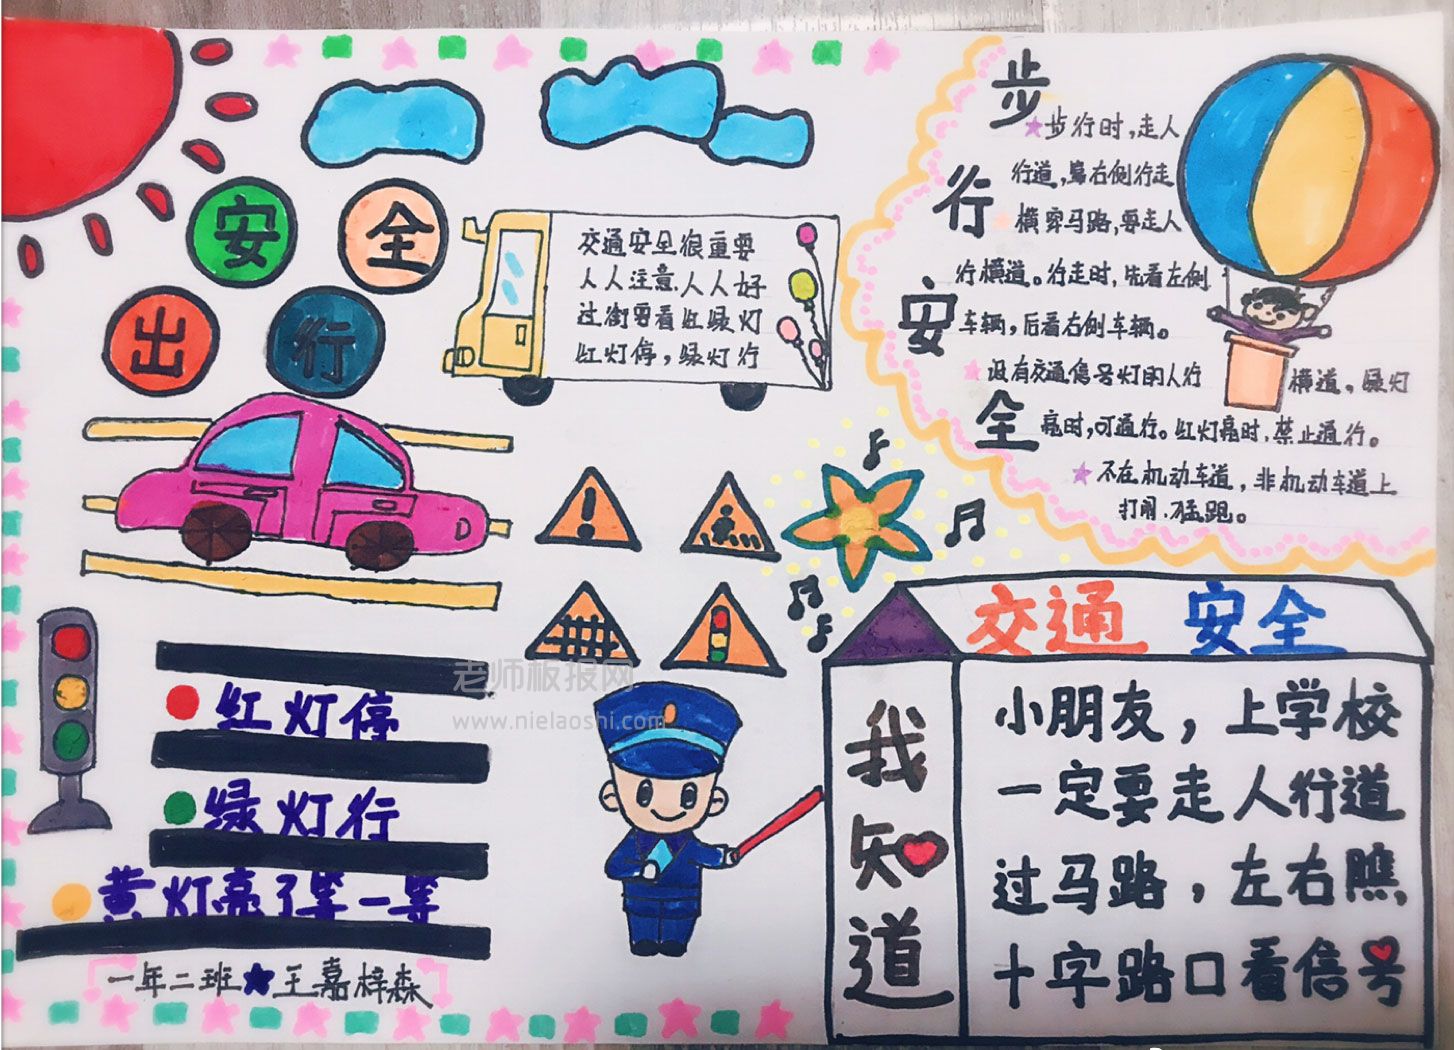 安全
出行
交通安全很重要
人人注意,人人好
过街要看红绿灯
红灯停,绿灯行
步行安全
★步行时,走人
行道,靠右侧行走
横穿马路,要走人
行横道。行走时,先看左侧
车辆,后看右侧车辆。
★没有交通信号灯的人行横道,绿灯
亮时,可通行。红灯亮时,禁止通行。
★不在机动车道,非机动车道上
打闹,猛跑。
红灯停
绿灯行
黄灯亮了等一等
一年二班★王嘉梓森
老师板报网
www.nielaoshi.com
交通 安全
我知道
小朋友,上学校
一定要走人行道
过马路,左右瞧,
十字路口看信号